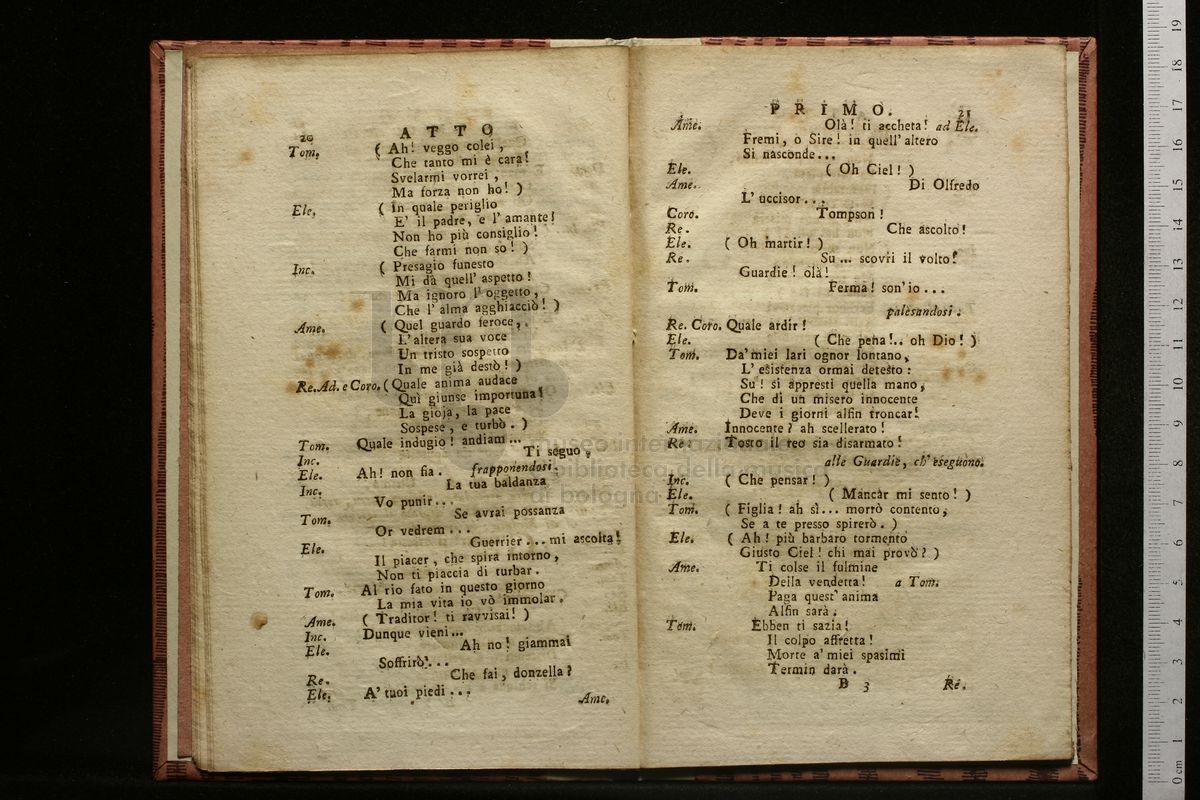 20
ATTO
Tom. ( Ah! veggo colei,
Che tanto mi è cara!
Svelarmi vorrei,
Ma forza non ho! )
Ele. ( In quale periglio
E' il padre, e l'amante!
Non ho più consiglio!
Che farmi non so! )
Inc. ( Presagio funesto
Mi dà quell' aspetto!
Ma ignoro l'oggetto,
Che l'alma agghiacciò! )
Ame. ( Quel guardo feroce,
L'altera sua voce
Un tristo sospetto
In me già destò! )
Re. Ad. e Coro. ( Quale anima audace
Quì giunse importuna!
La gioja, la pace
Sospese, e turbò. )
Tom. Quale indugio! andiam...
Inc. Ti seguo.
Ele. Ah! non fia. frapponendosi.
Inc. La tua baldanza
Vo punir...
Tom. Se avrai possanza
Or vedrem...
Ele. Guerrier... mi ascolta!
Il piacer, che spira intorno,
Non ti piaccia di turbar.
Tom. Al rio fato in questo giorno
La mia vita io vò immolar.
Ame. ( Traditor! ti ravvisai! )
Inc. Dunque vieni...
Ele. Ah no! giammai
Soffrirò!...
Re. Che fai, donzella?
Ele. A' tuoi piedi...
Ame.
PRIMO.
21
Ame. Olà! ti accheta! ad Ele.
Fremi, o Sire! in quell' altero
Si nasconde...
Ele. ( Oh Ciel! )
Ame. Di Olfredo
L' uccisor...
Coro. Tompson!
Re. Che ascolto!
Ele. ( Oh martir! )
Re. Su... scovri il volto!
Guardie! olà!
Tom. Ferma! son'io...
palesandosi.
Re. Coro. Quale ardir!
Ele. ( Che pena!.. oh Dio! )
Tom. Da'miei lari ognor lontano,
L' esistenza ormai detesto:
Su! si appresti quella mano,
Che di un misero innocente
Deve i giorni alfin troncar!
Ame. Innocente? ah scellerato!
Re. Tosto il reo sia disarmato!
alle Guardie, ch' eseguono.
Inc. ( Che pensar! )
Ele. ( Mancar mi sento! )
Tom. ( Figlia! ah sì... morrò contento,
Se a te presso spirerò. )
Ele. ( Ah! più barbaro tormento
Giusto Ciel! chi mai provò? )
Ame. Ti colse il fulmine
Della vendetta! a Tom.
Paga quest' anima
Alfin sarà.
Tom. Ebben ti sazia!
Il colpo affretta!
Morte a' miei spasimi
Termin darà.
B 3 Re.
museo internazionale
e biblioteca della musica
di bologna
0 cm 1 2 3 4 5 6 7 8 9 10 11 12 13 14 15 16 17 18 19